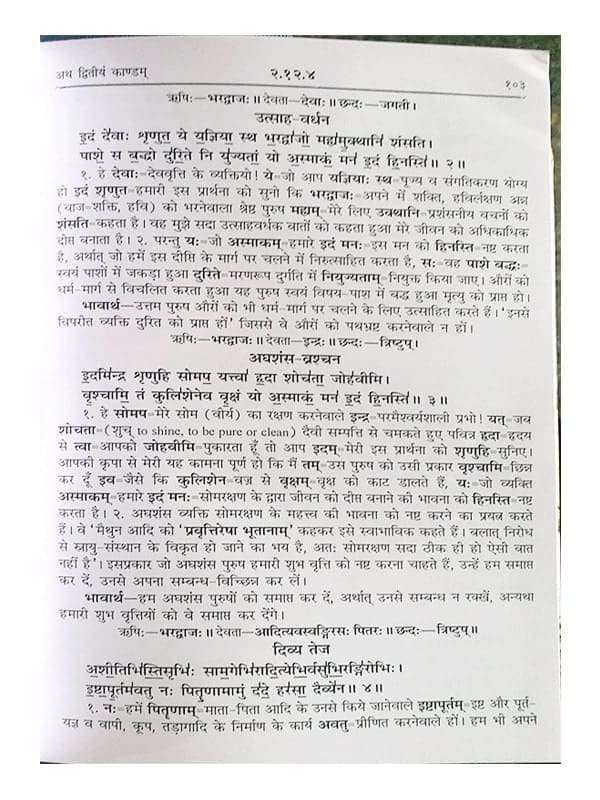 अथ द्वितीयं काण्डम् २.१२.४ १०३
ऋषिः—भरद्वाजः॥ देवता—देवाः॥ छन्दः—जगती।
उत्साह-वर्धन
इ॒दं दे॑वाः शृणुत॒ ये य॒ज्ञिया॒ स्थ भ॒रद्वा॑जो॒ मह्य॑मु॒क्थानि॑ शंसति।
पाशे॒ स ब॒द्धो दु॑रि॒ते नि यु॑ज्यतां॒ यो अ॒स्माकं॒ मन॑ इ॒दं हि॒नस्ति॑॥ २॥
१. हे देवाः=देववृत्ति के व्यक्तियो! ये=जो आप यज्ञियाः स्थ=पूज्य व संगतिकरण योग्य
हो इदं शृणुत=हमारी इस प्रार्थना को सुनो कि भरद्वाजः=अपने में शक्ति, हविर्लक्षण अन्न
(वाज=शक्ति, हवि) को भरनेवाला श्रेष्ठ पुरुष मह्यम्=मेरे लिए उक्थानि=प्रशंसनीय वचनों को
शंसति=कहता है। वह मुझे सदा उत्साहवर्धक बातों को कहता हुआ मेरे जीवन को अधिकाधिक
दीप्त बनाता है। २. परन्तु यः=जो अस्माकम्=हमारे इदं मनः=इस मन को हिनस्ति=नष्ट करता
है, अर्थात् जो हमें इस दीप्ति के मार्ग पर चलने में निरुत्साहित करता है, सः=वह पाशे बद्धः=
स्वयं पाशों में जकड़ा हुआ दुरिते=मरणरूप दुर्गति में नियुज्यताम्=नियुक्त किया जाए। औरों को
धर्म-मार्ग से विचलित करता हुआ यह पुरुष स्वयं विषय-पाश में बद्ध हुआ मृत्यु को प्राप्त हो।
भावार्थ—उत्तम पुरुष औरों को भी धर्म-मार्ग पर चलने के लिए उत्साहित करते हैं। 'इनसे
विपरीत व्यक्ति दुरित को प्राप्त हों' जिससे वे औरों को पथभ्रष्ट करनेवाले न हों।
ऋषिः—भरद्वाजः॥ देवता—इन्द्रः॥ छन्दः—त्रिष्टुप्।
अघशंस-व्रश्चन
इ॒दमि॑न्द्र शृणुहि सोमप॒ यत्त्वा॑ हृ॒दा शोच॑ता॒ जोह॑वीमि।
वृ॒श्चामि॒ तं कुलि॑शेनेव वृ॒क्षं यो अ॒स्माकं॒ मन॑ इ॒दं हि॒नस्ति॑॥ ३॥
१. हे सोमप=मेरे सोम (वीर्य) का रक्षण करनेवाले इन्द्र=परमैश्वर्यशाली प्रभो! यत्=जब
शोचता=(शुच् to shine, to be pure or clean) दैवी सम्पत्ति से चमकते हुए पवित्र हृदा=हृदय
से त्वा=आपको जोहवीमि=पुकारता हूँ तो आप इदम्=मेरी इस प्रार्थना को शृणुहि=सुनिए।
आपकी कृपा से मेरी यह कामना पूर्ण हो कि मैं तम्=उस पुरुष को उसी प्रकार वृश्चामि=छिन्न
कर दूँ इव=जैसे कि कुलिशेन=वज्र से वृक्षम्=वृक्ष को काट डालते हैं, यः=जो व्यक्ति
अस्माकम्=हमारे इदं मनः=सोमरक्षण के द्वारा जीवन को दीप्त बनाने की भावना को हिनस्ति=नष्ट
करता है। २. अघशंस व्यक्ति सोमरक्षण के महत्त्व की भावना को नष्ट करने का प्रयत्न करते
हैं। वे 'मैथुन आदि को 'प्रवृत्तिरेषा भूतानाम्' कहकर इसे स्वाभाविक कहते हैं। बलात् निरोध
से स्नायु-संस्थान के विकृत हो जाने का भय है, अतः सोमरक्षण सदा ठीक ही हो ऐसी बात
नहीं है'। इसप्रकार जो अघशंस पुरुष हमारी शुभ वृत्ति को नष्ट करना चाहते हैं, उन्हें हम समाप्त
कर दें, उनसे अपना सम्बन्ध-विच्छिन्न कर लें।
भावार्थ—हम अघशंस पुरुषों को समाप्त कर दें, अर्थात् उनसे सम्बन्ध न रक्खें, अन्यथा
हमारी शुभ वृत्तियों को वे समाप्त कर देंगे।
ऋषिः—भरद्वाजः॥ देवता—आदित्यवस्वङ्गिरसः पितरः॥ छन्दः—त्रिष्टुप्॥
दिव्य तेज
अ॒शी॒तिभि॑स्ति॒सृभिः॑ साम॒गेभि॑रादि॒त्येभि॒र्वसु॑भि॒रङ्गि॑रोभिः।
इ॒ष्टा॒पू॒र्तम॑वतु नः पितॄ॒णामामुं द॑दे॒ हर॑सा॒ दैव्ये॑न॥ ४॥
१. नः=हमें पितॄणाम्=माता-पिता आदि के उनसे किये जानेवाले इष्टापूर्तम्=इष्ट और पूर्त-
यज्ञ व वापी, कूप, तड़ागादि के निर्माण के कार्य अवतु=प्रीणित करनेवाले हों। हम भी अपने